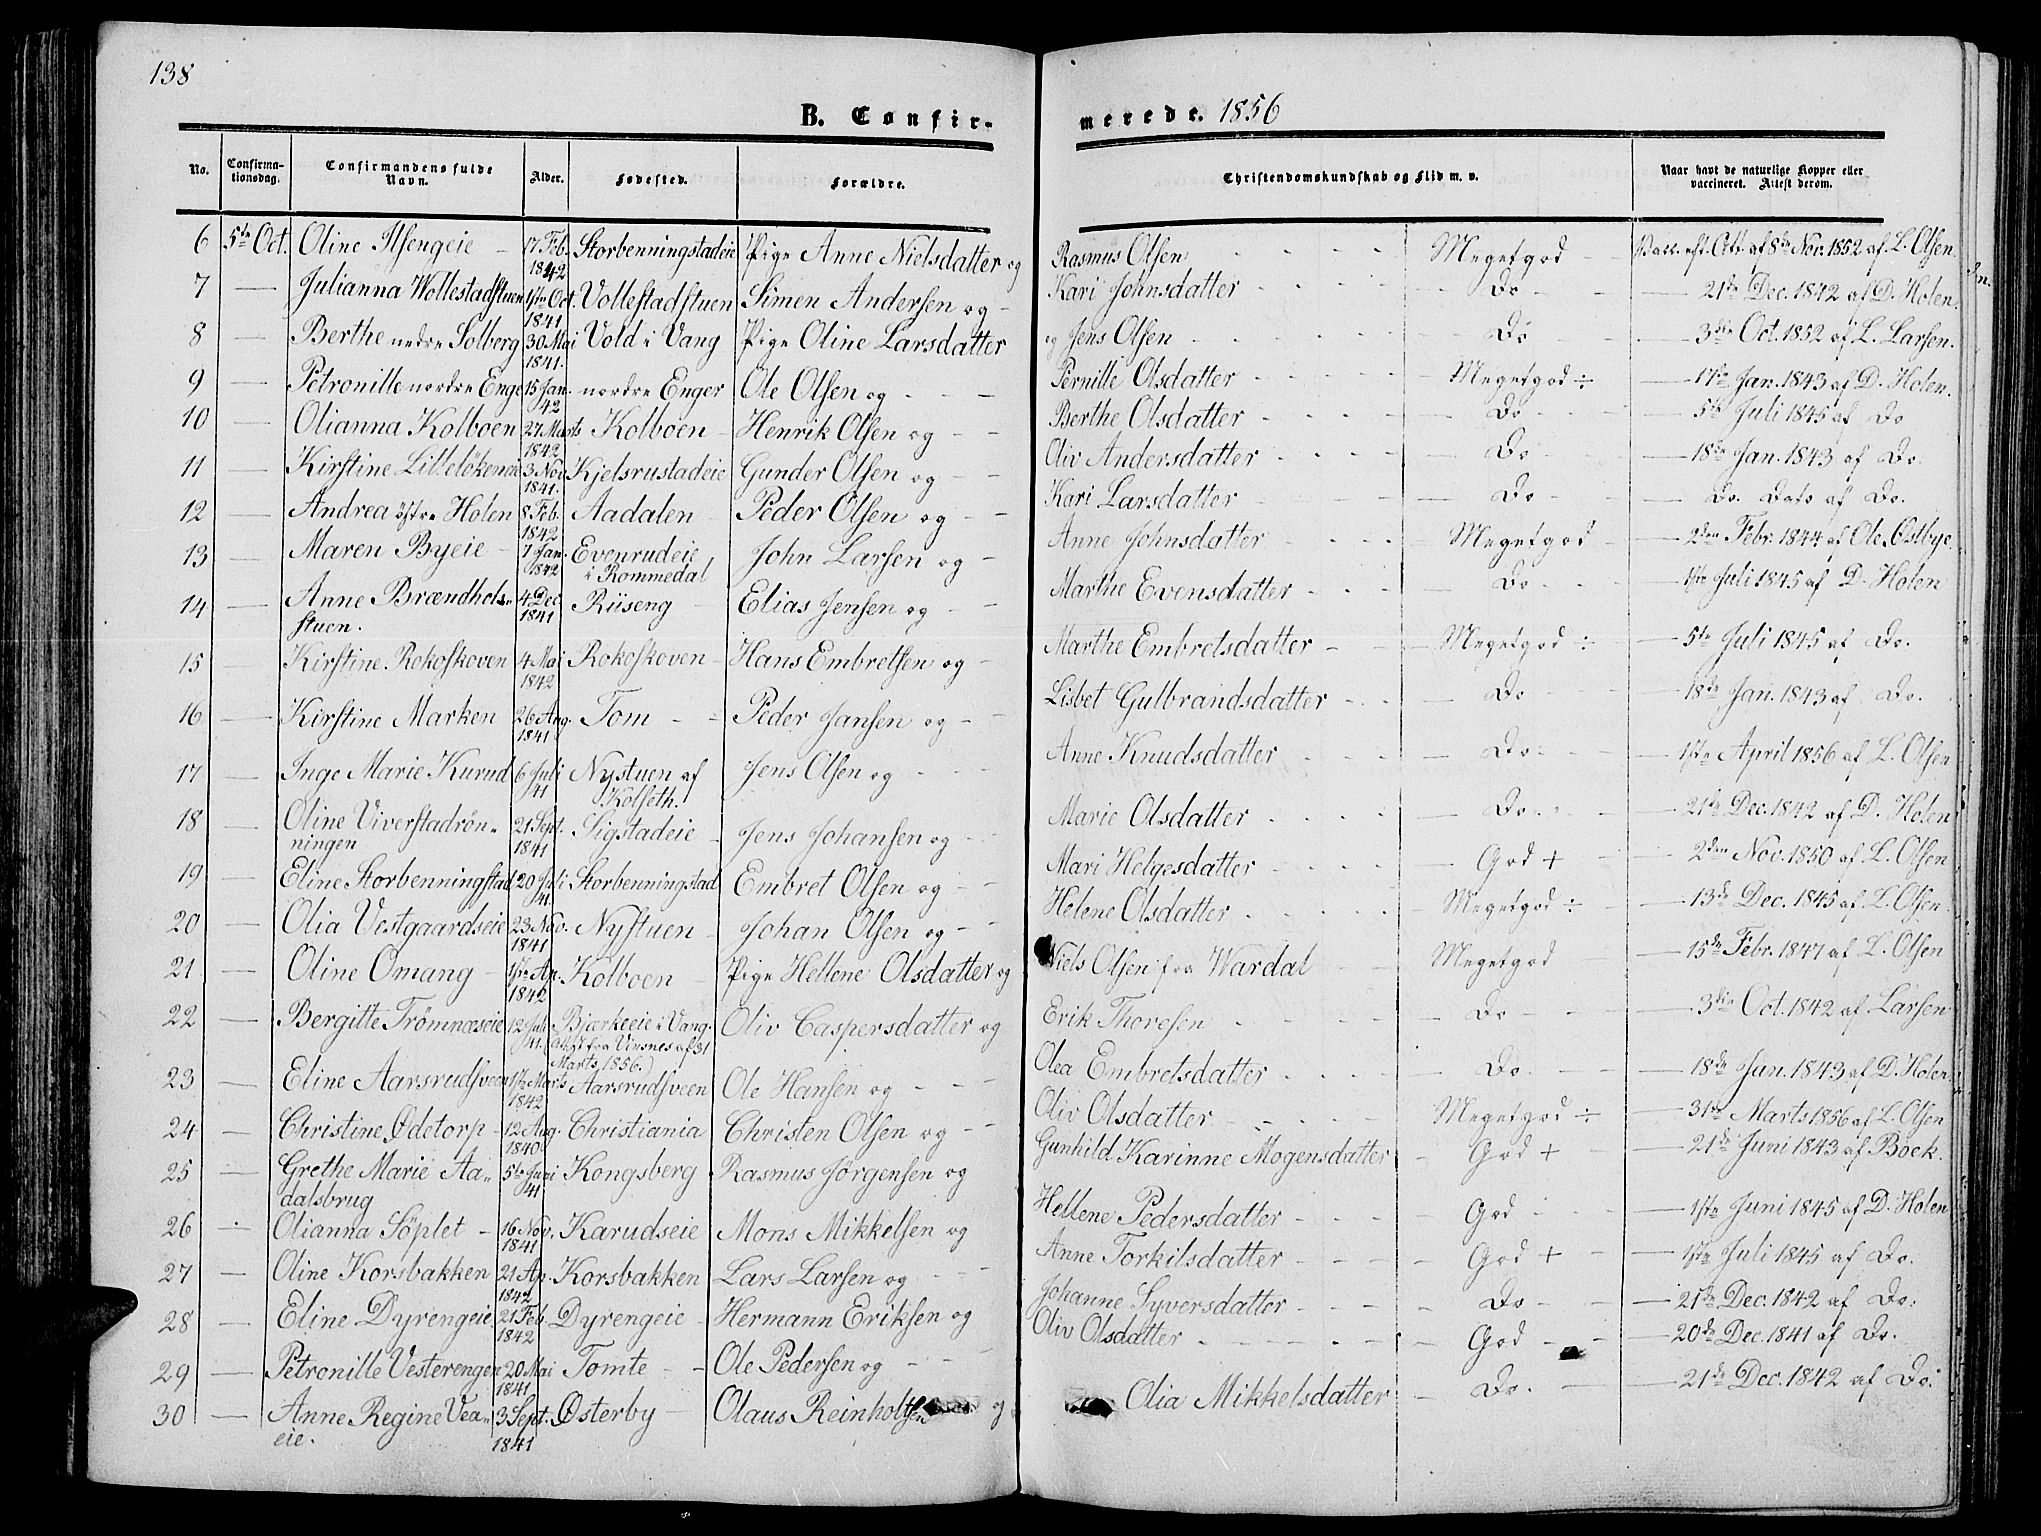 138
B. Confir- merede. 1856
No. Confirma-tionsdag. Confirmandens fulde Navn. Alder. Fødested. Forældre. Christendomskundskab og Flid m. v. Naar havt de naturlige Kopper eller vaccineret. Attest derom.
6 5te Oct. Oline Ilsengeie - 17 Feb. 1842 Storbenningstadeie Pige Anne Nielsdatter og Rasmus Olsen - - - Megetgod - Vacc. eft. Att. af 8de Nov. 1852 af L. Olsen.
7 — Julianna Wollestadstuen 1ste Oct. 1841 Vollestadstuen Simen Andersen og - Kari Johnsdatter - - - Do - - 21de Dec. 1842 af D. Holen.
8 — Berthe nedre Solberg 30 Mai 1841. Vold i Vang Pige Oline Larsdatter og Jens Olsen - - - Do - - 3die Oct. 1852 af L. Larsen.
9 — Petronille nordre Enge 15 Jan. 42 nordre Enger Ole Olsen og - - - Pernille Olsdatter - - - Megetgod ÷ — 17de Jan. 1843 af D. Holen.
10 — Olianna Kolboen 27 Marts 1842 Kolboen - Henrik Olsen og - - Berthe Olsdatter - - - Do - - — 5te Juli 1845 af Do
11 — Kirstine Lilleløkeneie 3 Nov. 1841. Kjelsrustadeie Gunder Olsen og - - Oliv Andersdatter - - - Do - - — 18de Jan. 1843 af Do.
12 — Andrea østre Holen 8 Feb. 1842 Aadalen - Peder Olsen og - - Kari Larsdatter - - - Do - — Do. Dato af Do.
13 — Maren Byeie - 7 Jan. 1842 Evenrudeie i Rommedal John Larsen og - Anne Johnsdatter - - - Megetgod - — 2den Febr. 1844 af Ole Østbye.
14 — Anne Brændhols- stuen. 4 Dec. 1841 Riiseng - Elias Jensen og - - Marthe Evensdatter - - - Do - — 1ste Juli 1845 af D. Holen
15 — Kirstine Rokoskoven 4 Mai 1842 Rokoskoven - Hans Embretsen og - Marthe Embretsdatter - - Megetgod ÷ — 5te Juli 1845 af Do.
16 — Kirstine Marken 26 Aug. 1841 Tom - - Peder Jansen og - - Lisbet Gulbrandsdatter - - - Do - - — 18de Jan. 1843 af Do.
17 — Inge Marie Kurud 6 Juli 41 Nystuen af Kolseth. Jens Olsen og - - - Anne Knudsdatter - - - Do - - — 1ste April 1856 af L. Olsen
18 — Oline Viverstadrøn- ningen 21 Sept. 1841 Sigstadeie - Jens Johansen og - - Marie Olsdatter - - - Do - - — 21de Dec. 1842 af D. Holen
19 — Eline Storbenningstad 20 Juli 41. Storbenningstad Embret Olsen og - - Mari Helgesdatter - - - God + - — 2den Nov. 1850 af L. Olsen
20 — Olia Vestgaardseie 23 Nov. 1841 Nystuen - Johan Olsen og - - Helene Olsdatter - - - Megetgod ÷ - — 13de Dec. 1845 af L. Olsen.
21 — Oline Omang - 1ste Ap. 1842 Kolboen - Pige Hellene Olsdatter og Niels Olsen fra Wardal - Megetgod - — 15de Febr. 1847 af L. Olsen
22 — Bergitte Trømnæseie 12 Juli 41. Bjærkeeie i Vang. (Att fra Vinsnes af 31 Marts 1856.) Oliv Caspersdatter og Erik Thoresen - - - Do - - — 3die Oct. 1842 af Larsen
23 — Eline Aarsrudsveen 1ste Marts 1842 Aarsrudsveen Ole Hansen og - - - Olea Embretsdatter - - - Do. - - — 18de Jan. 1843 af D. Holen
24 — Christine Ødetorp - 12 Aug. 1840 Christiania Christen Olsen og - - Oliv Olsdatter - - - Megetgod ÷ — 31te Marts 1856 af L. Olsen
25 — Grethe Marie Aa- dalsbrug 5te Juni 41 Kongsberg Rasmus Jørgensen og Gunhild Karinne Mogensdatter - God + - — 21de Juni 1843 af Boek.
26 — Olianna Søplet - 16 Nov. 1841 Karudseie Mons Mikkelsen og Hellene Pedersdatter - - - God - - — 1ste Juni 1845 af D. Holen
27 — Oline Korsbakken 21 Ap. 1842 Korsbakken Lars Larsen og - - Anne Torkilsdatter - - - God + - — 1ste Juli 1845 af Do.
28 — Eline Dyrengeie 21 Feb. 1842 Dyrengeie - Hermann Eriksen og Johanne Syversdatter - - - Do - - — 21de Dec. 1842 af Do.
29 — Petronille Vesterengen 20 Mai 1841 Tomte - - Ole Pedersen og - - - Oliv Olsdatter - - - God - - — 20de Dec. 1841 af Do.
30 — Anne Regine Vea- eie. 3 Sept. 1841 Østerby - Olaus Reinholtsen og Olia Mikkelsdatter - Do. - — 21de Dec. 1842 af Do.